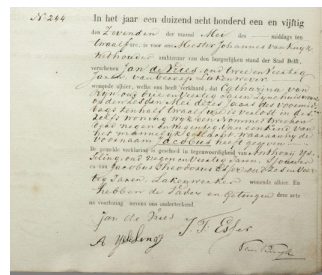 N° 244.
In het jaar een duizend acht honderd een en vijftig
den Zevenden der maand Mei des — middags ten
twaalf ure, is voor ons Meester Johannes van Kuyk
Wethouder ambtenaar van den burgerlijken stand der Stad Delft,
verschenen Jan de Vries, oud twee en Veertig
Jaren, van beroep Lakenwever
wonende alhier, welke ons heeft verklaard, dat Catharina van
Rijn oud drie en Veertig
op den zesden Mei dezes Jaars des voormid
dags ten half twaalf ure is verlost in des
zelfs woning wijk een Nommer twee hon
derd negen en zestig van een kind van
het mannelijk geslacht, waaraan hij den
voornaam Jacobus heeft gegeven
De gemelde verklaring is geschied in tegenwoordigheid van Anthony Ys
seling oud negen en Veertig Jaren,
en van Jacobus Theodorus Esser, oud zes en Veer
tig Jaren, Lakenwerker wonende alhier. En
hebben de Vader en Getuigen deze acte
na voorlezing nevens ons onderteekend.
Jan de Vries J. T. Esser
A Ysseling
Van Kuyk